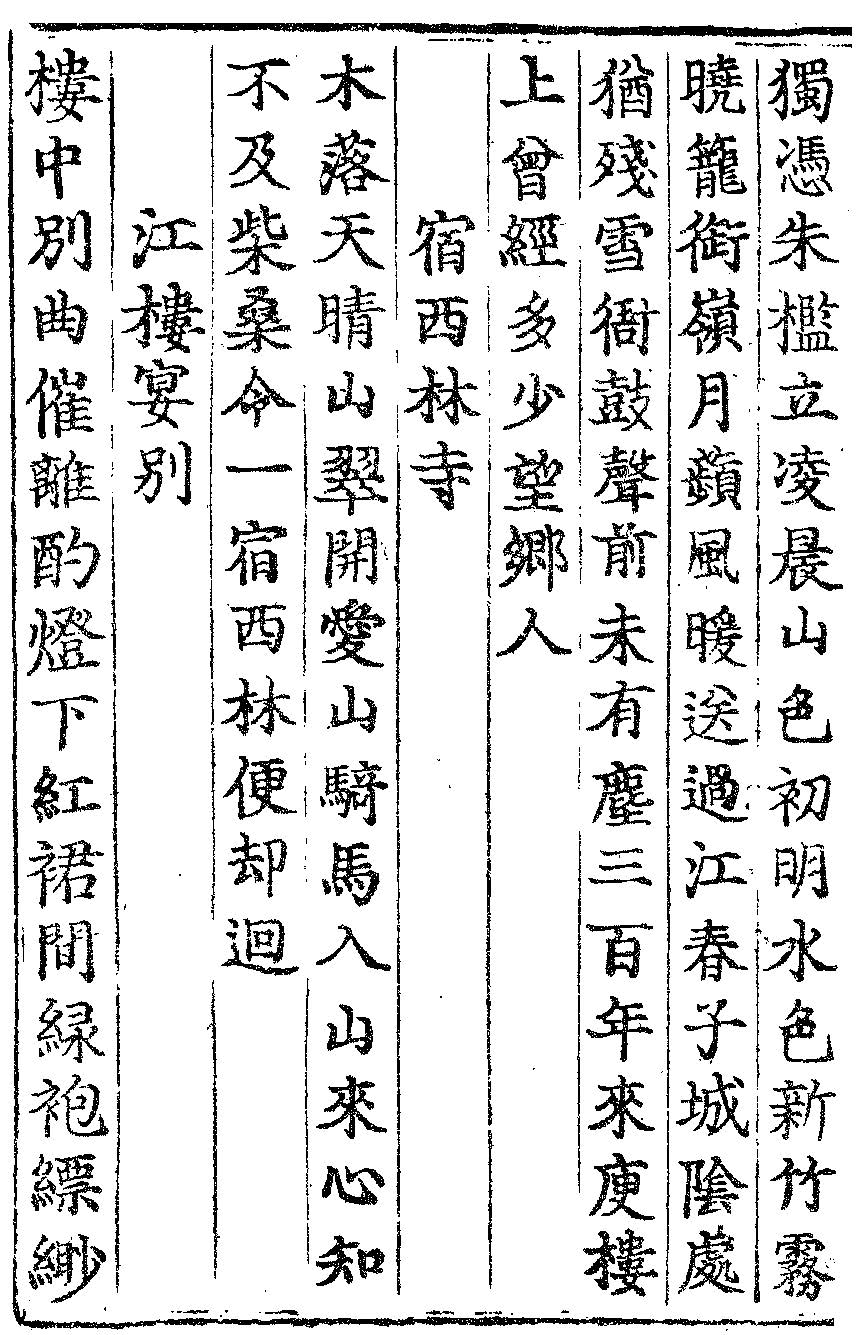 獨憑朱檻立凌晨山色初明水色新竹霧
曉籠銜嶺月蘋風暖送過江春子城陰處
猶殘雪衙鼓聲前未有塵三百年來庾樓
上曾經多少望鄉人
宿西林寺
木落天晴山翠開愛山騎馬入山來心知
不及柴桑令一宿西林便却迴
江樓宴別
樓中別曲催離酌燈下紅裙間緑袍縹緲